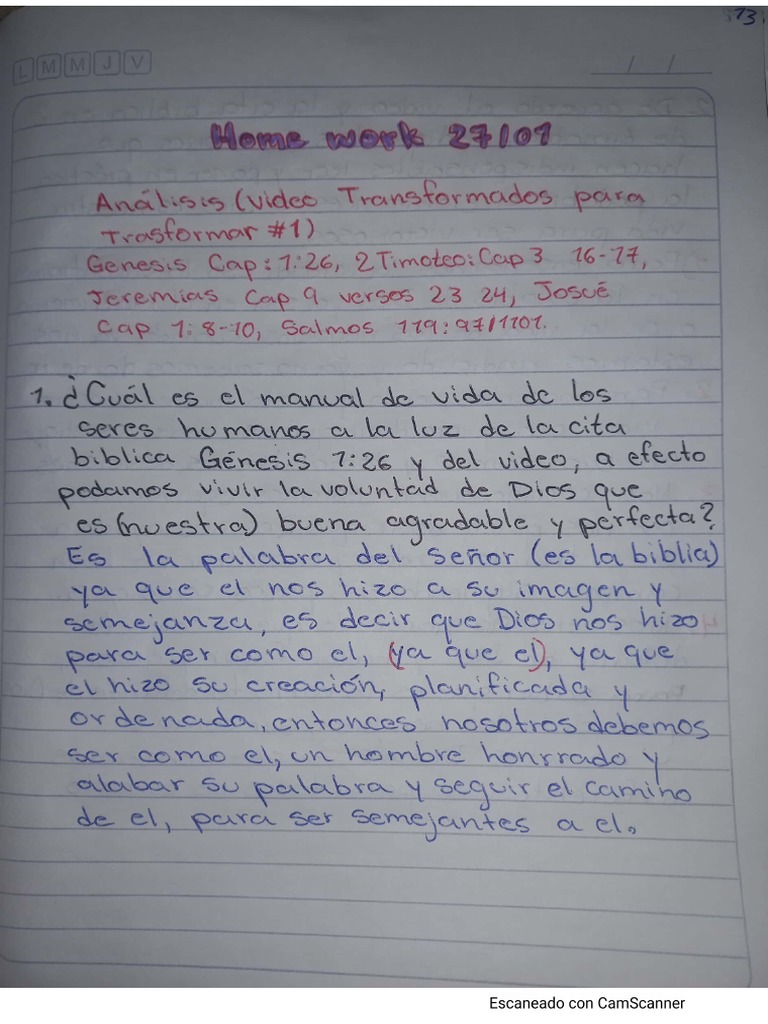 13
L M M J V
/ /
Home work 27/01
Análisis (video Transformados para
Trasformar #1)
Genesis Cap: 1:26, 2 Timoteo: Cap 3 16-17,
Jeremias Cap 9 versos 23 24, Josué
Cap 1: 8-10, Salmos 119:97/1101.
1. ¿Cuál es el manual de vida de los
seres humanos a la luz de la cita
biblica Génesis 1:26 y del video, a efecto
podamos vivir la voluntad de Dios que
es (nuestra) buena agradable y perfecta?
Es la palabra del señor (es la biblia)
ya que el nos hizo a su imagen y
semejanza, es decir que Dios nos hizo
para ser como el, (ya que el), ya que
el hizo su creación, planificada y
ordenada, entonces nosotros debemos
ser como el, un hombre honrrado y
alabar su palabra y seguir el camino
de el, para ser semejantes a el.
Escaneado con CamScanner